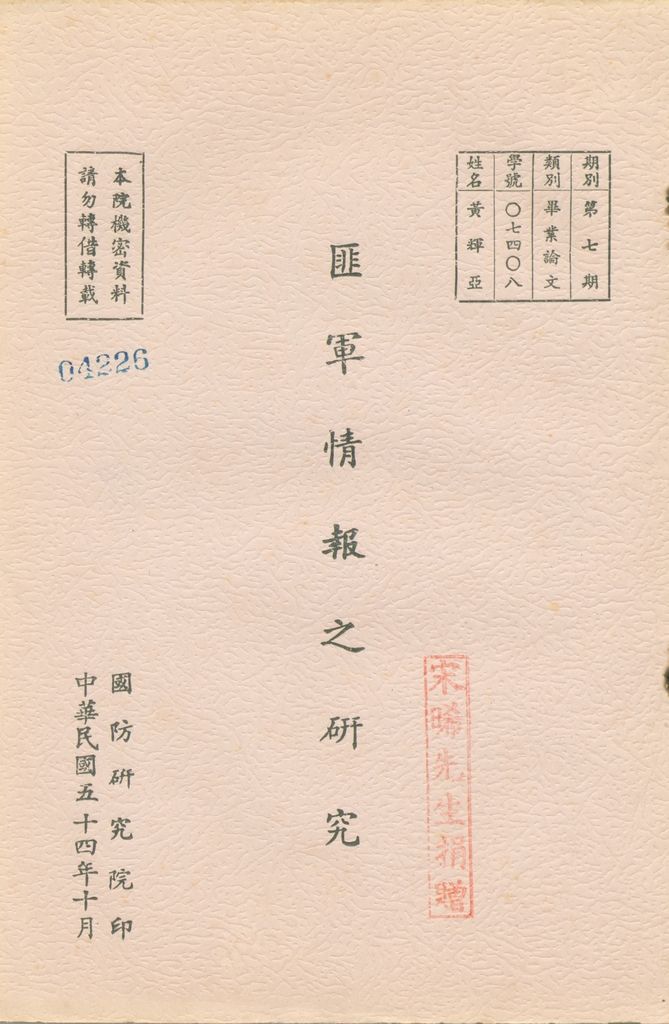 期別 第七期
類別 畢業論文
學號 〇七四〇八
姓名 黃輝亞
匪軍情報之研究
宋晞先生捐贈
本院機密資料
請勿轉借轉載
04226
國防研究院印
中華民國五十四年十月